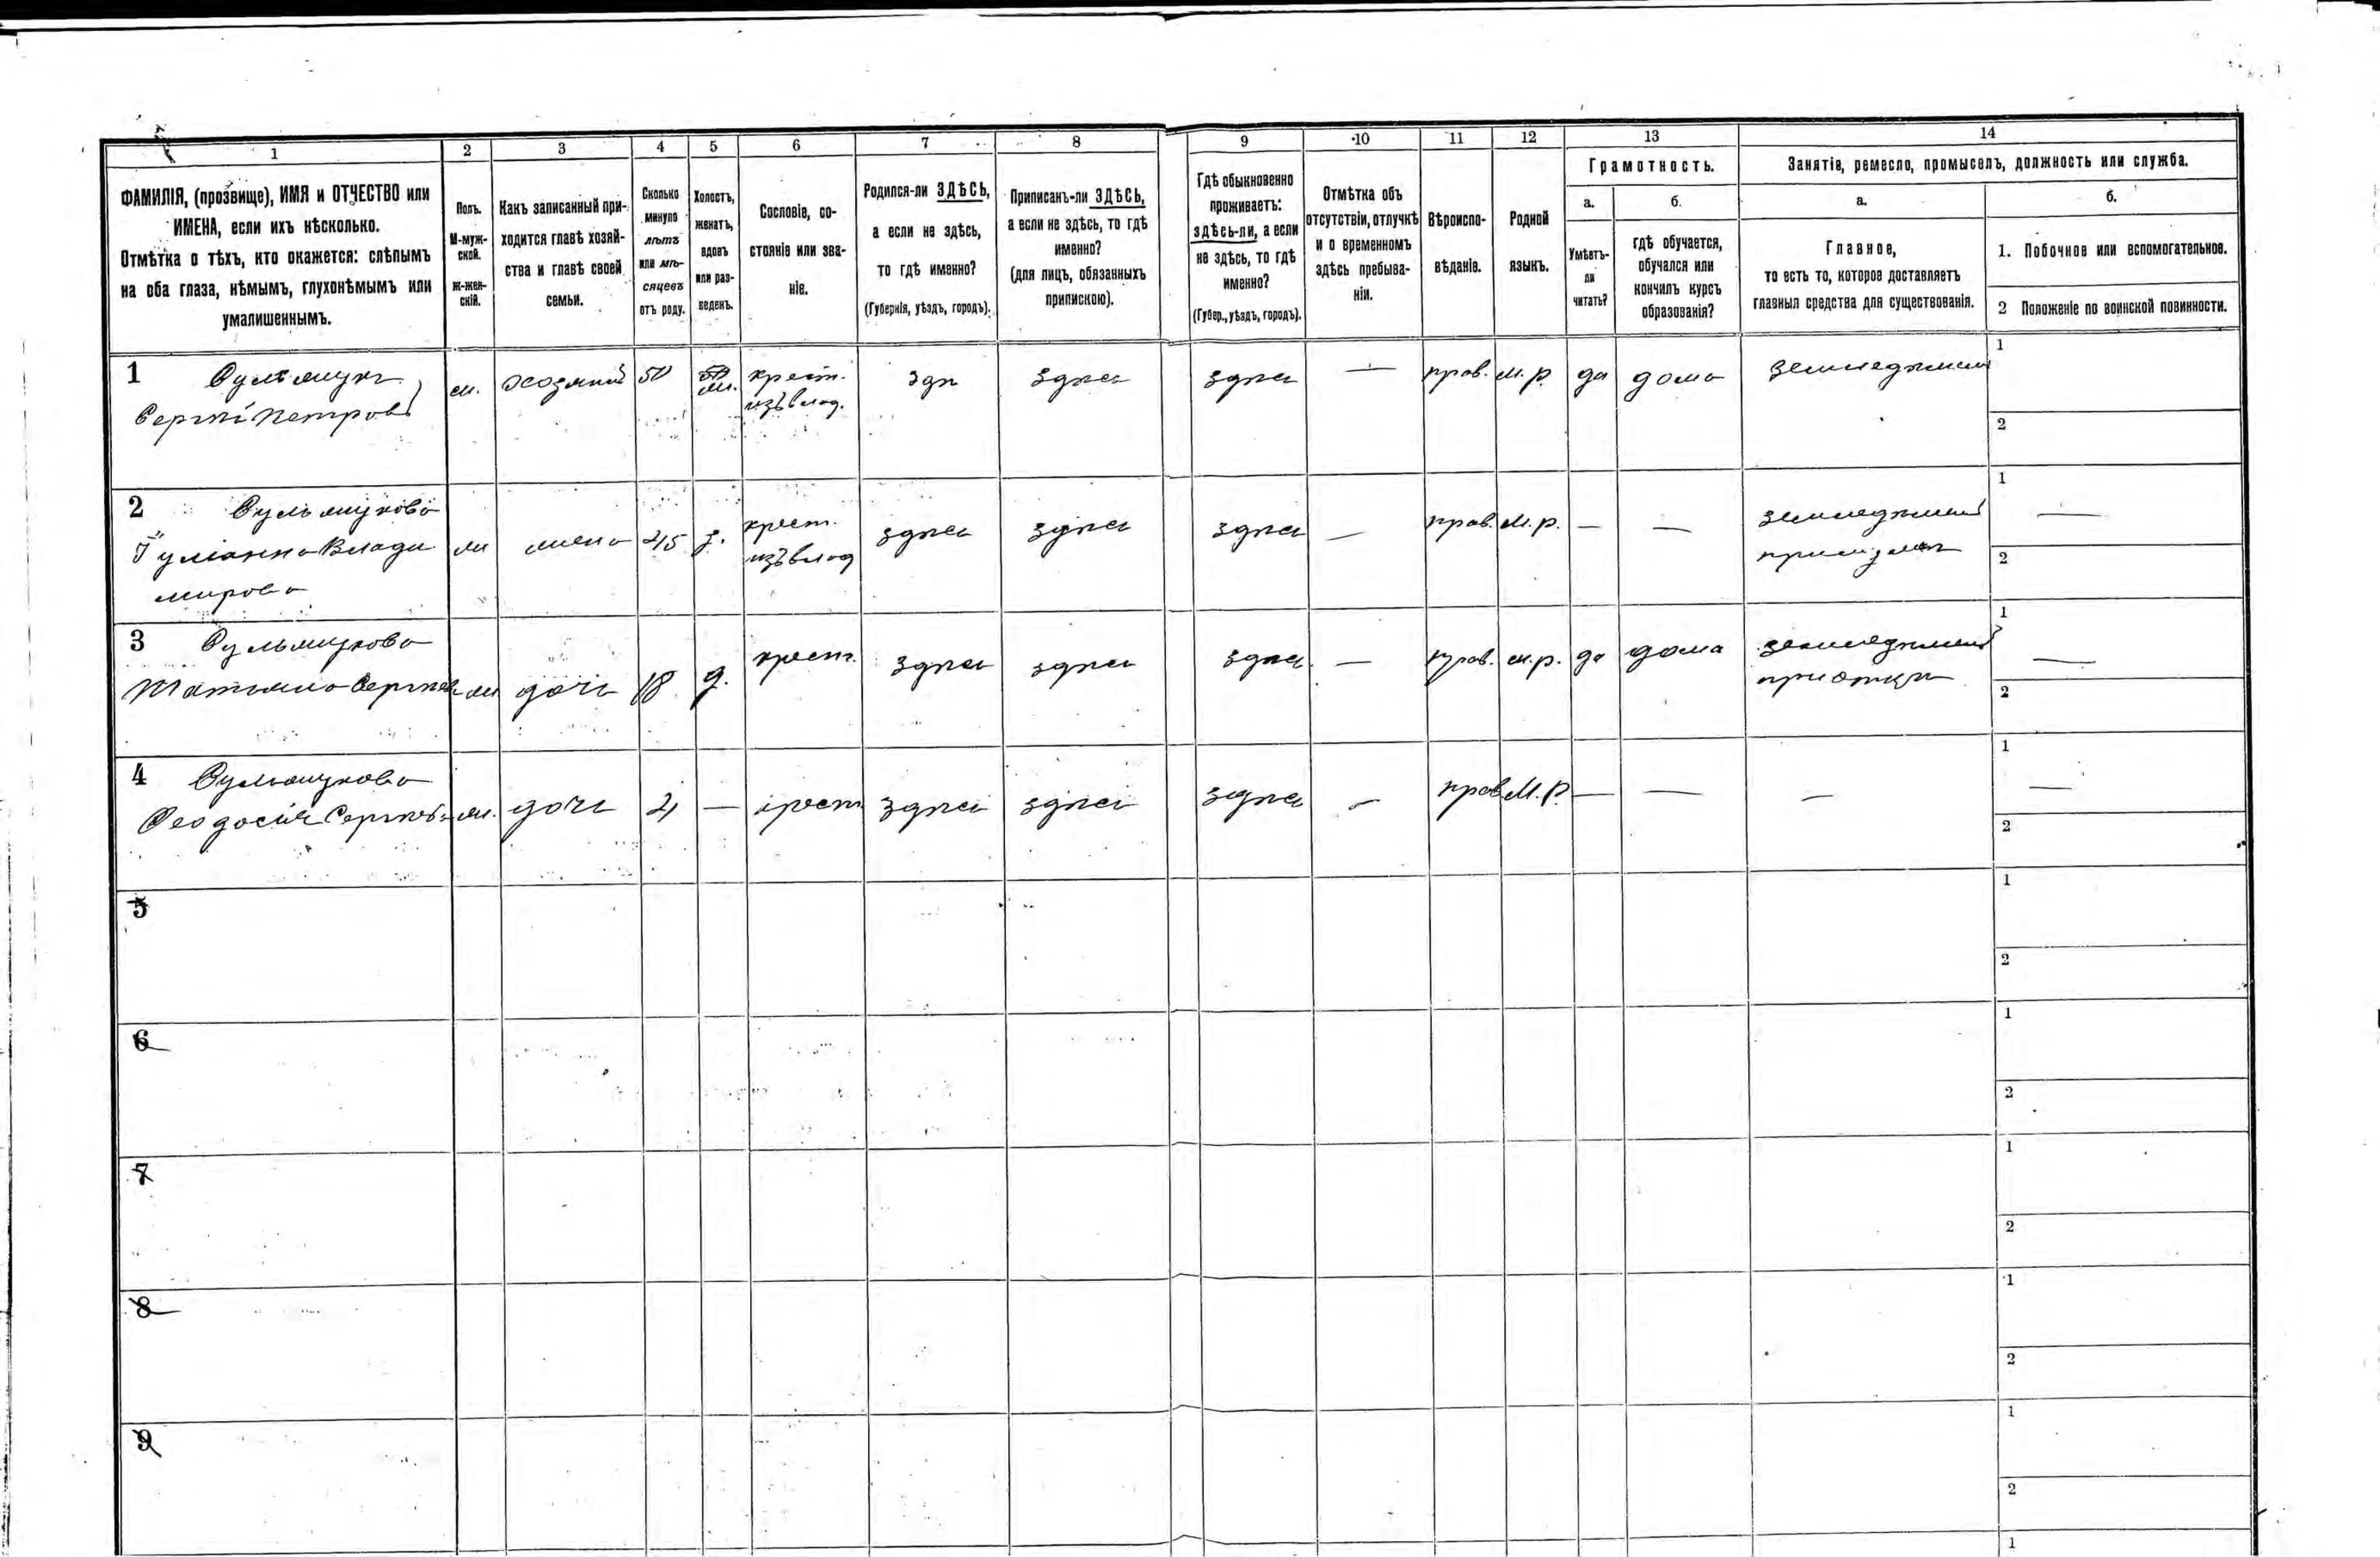 1 2 3 4 5 6 7 8 9 10 11 12 13 14
ФАМИЛІЯ, (прозвище), ИМЯ и ОТЧЕСТВО или
ИМЕНА, если ихъ нѣсколько.
Отмѣтка о тѣхъ, кто окажется: слѣпымъ
на оба глаза, нѣмымъ, глухонѣмымъ или
умалишеннымъ.
Полъ.
М-муж-
ской.
ж-жен-
скій.
Какъ записанный при-
ходится главѣ хозяй-
ства и главѣ своей
семьи.
Сколько
минуло
лѣтъ
или мѣ-
сяцевъ
отъ роду.
Холостъ,
женатъ,
вдовъ
или раз-
веденъ.
Сословіе, со-
стояніе или зва-
ніе.
Родился-ли ЗДѢСЬ,
а если не здѣсь,
то гдѣ именно?
(Губернія, уѣздъ, городъ).
Приписанъ-ли ЗДѢСЬ,
а если не здѣсь, то гдѣ
именно?
(для лицъ, обязанныхъ
припискою).
Гдѣ обыкновенно
проживаетъ:
здѣсь-ли, а если
не здѣсь, то гдѣ
именно?
(Губер., уѣздъ, городъ).
Отмѣтка объ
отсутствіи, отлучкѣ
и о временномъ
здѣсь пребыва-
ніи.
Вѣроиспо-
вѣданіе.
Родной
языкъ.
Грамотность.
а.
Умѣетъ-
ли
читать?
б.
гдѣ обучается,
обучался или
кончилъ курсъ
образованія?
Занятіе, ремесло, промыселъ, должность или служба.
а.
Главное,
то есть то, которое доставляетъ
главныя средства для существованія.
б.
1. Побочное или вспомогательное.
2 Положеніе по воинской повинности.
1 м. хозяинъ 50 крест. здѣ здѣсь здѣсь — прав. м. р. да дома земледѣлие 1
Сергѣй Петровъ изъ влад.
2
2 жена 45 з. крест. здѣсь здѣсь здѣсь — прав. М. р. — — земледѣлие 1 —
Ѵліанна Влади изъ влад при 2
мирова
3 дочь 18 д. крест. здѣсь здѣсь здѣсь — прав. м. р. да дома земледѣлие 1 —
Татьяна Сергѣев при отцѣ 2
4 дочь — крест здѣсь здѣсь здѣсь — прав М. р. — — — 1 —
Ѳеодосія Сергѣев 2
5 1
2
6 1
2
7 1
2
8 1
2
9 1
2
1